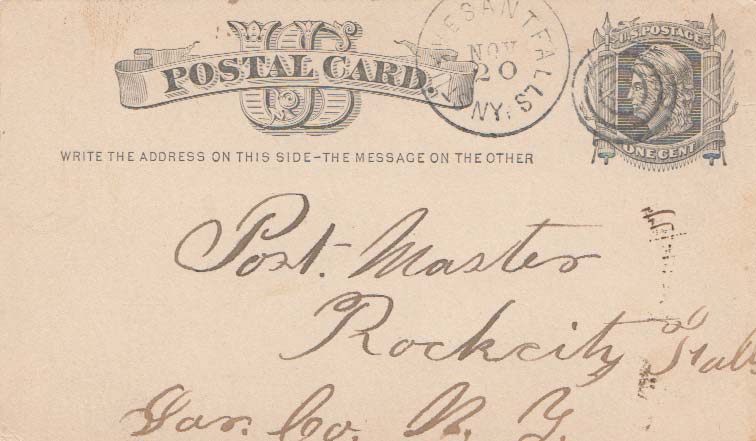 US
POSTAL CARD.
WRITE THE ADDRESS ON THIS SIDE–THE MESSAGE ON THE OTHER
NOV
20
NY.
U.S. POSTAGE
ONE CENT
Post-Master
Rockcity Falls
Sar. Co. N. Y.